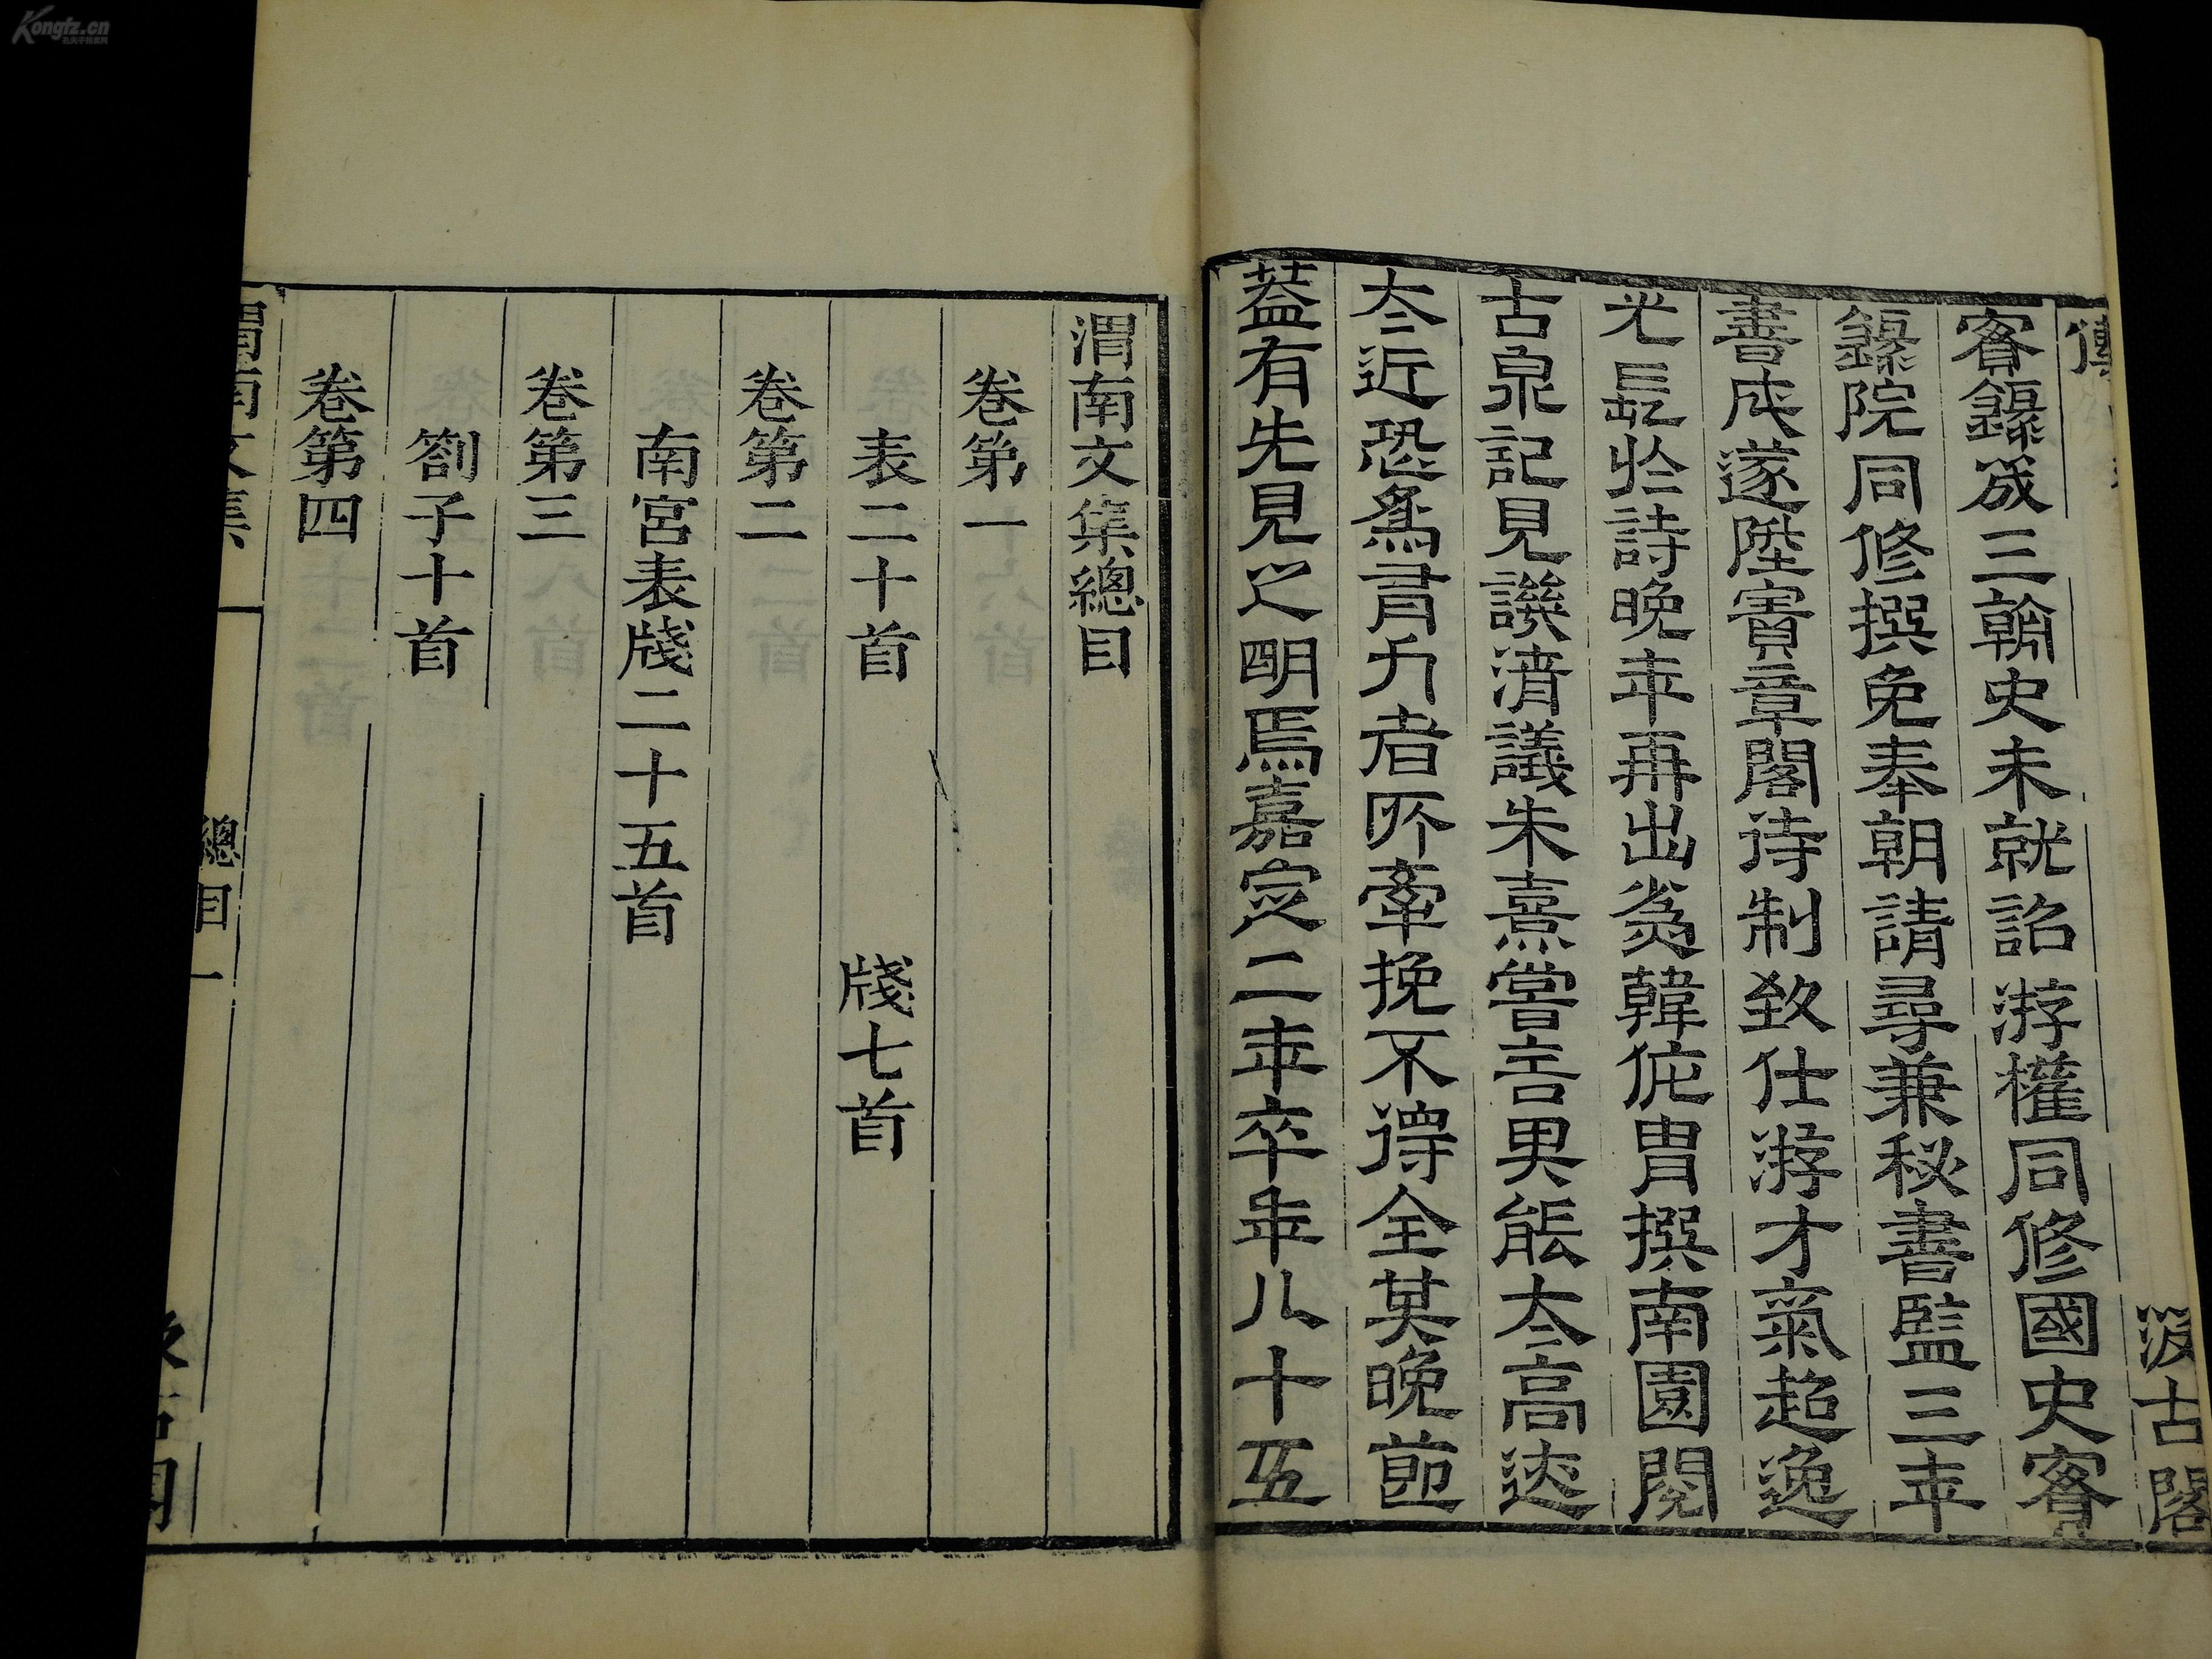 Kongfz.cn
傳
汲古閣
實錄篹三朝史未就詔游權同修國史實
錄院同修撰免奉朝請尋兼秘書監三年
書成遂陞寶章閣待制致仕游才氣超逸
尤長於詩晚年再出爲韓侂冑撰南園閱
古泉記見譏清議朱熹嘗言其能太高迹
太近恐爲有力者所牽挽不得全其晚節
蓋有先見之明焉嘉定二年卒年八十五
渭南文集總目
卷第一
表二十首 牋七首
卷第二
南宮表牋二十五首
卷第三
劄子十首
卷第四
渭南文集 總目 一